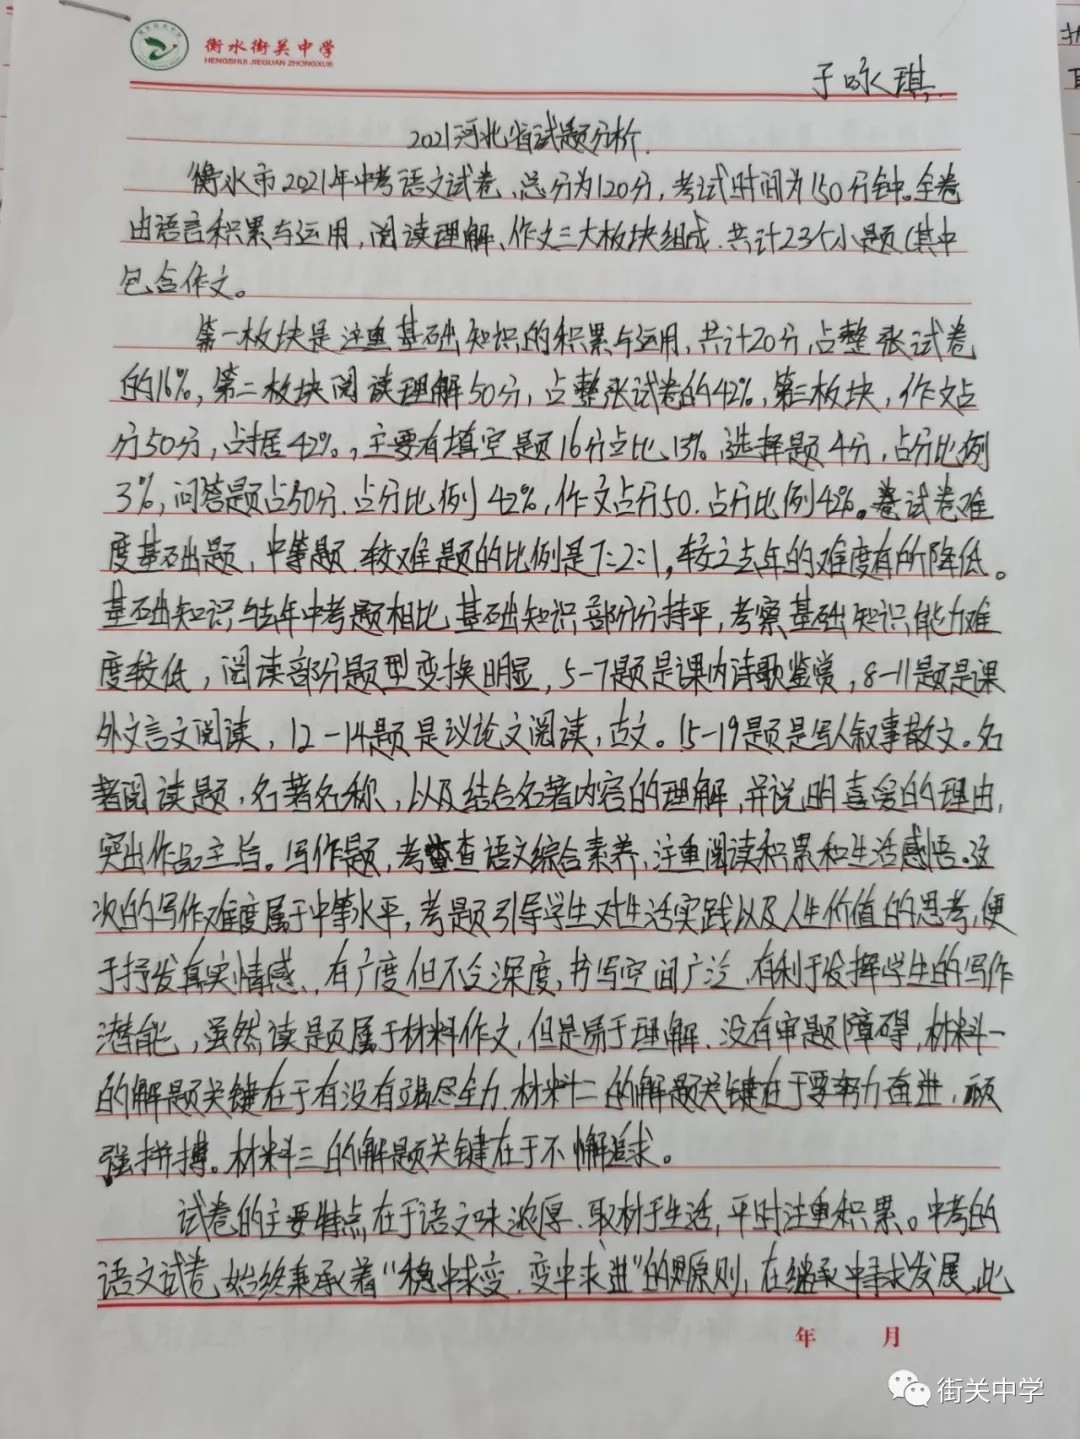 衡水街关中学
HENGSHUI JIEGUAN ZHONGXUE
于咏琪
2021河北省试题分析
衡水市2021年中考语文试卷、总分为120分,考试时间为150分钟。全卷
由语言积累与运用,阅读理解、作文三大板块组成.共计23个小题(其中
包含作文。
第一板块是注重基础知识的积累与运用,共计20分,占整张试卷
的16%,第二板块阅读理解50分,占整张试卷的42%,第三板块,作文占
分50分,占据42%。,主要有填空题16分占比13%.选择题4分,占分比例
3%,问答题占50分.占分比例42%,作文占分50.占分比例42%。卷试卷难
度基础题,中等题.较难题的比例是7:2:1,较之去年的难度有所降低。
基础知识与去年中考题相比,基础知识部分分持平,考察基础知识能力难
度较低,阅读部分题型变换明显,5-7题是课内诗歌鉴赏,8-11题是课
外文言文阅读,12-14题是议论文阅读,古文。15-19题是写人叙事散文。名
著阅读题,名著名称,以及结合名著内容的理解,并说明喜爱的理由,
突出作品主旨。写作题,考查语文综合素养,注重阅读积累和生活感悟。这
次的写作难度属于中等水平,考题引导学生对生活实践以及人生价值的思考,便
于抒发真实情感,有广度但不乏深度,书写空间广泛,有利于发挥学生的写作
潜能,虽然读题属于材料作文,但是易于理解.没有审题障碍,材料一
的解题关键在于有没有竭尽全力.材料二的解题关键在于要努力奋进,顽
强拼搏。材料三的解题关键在于不懈追求。
试卷的主要特点在于语文味浓厚.取材于生活,平时注重积累。中考的
语文试卷,始终秉承着“稳中求变.变中求进”的原则,在继承中寻求发展,此
年 月
街关中学